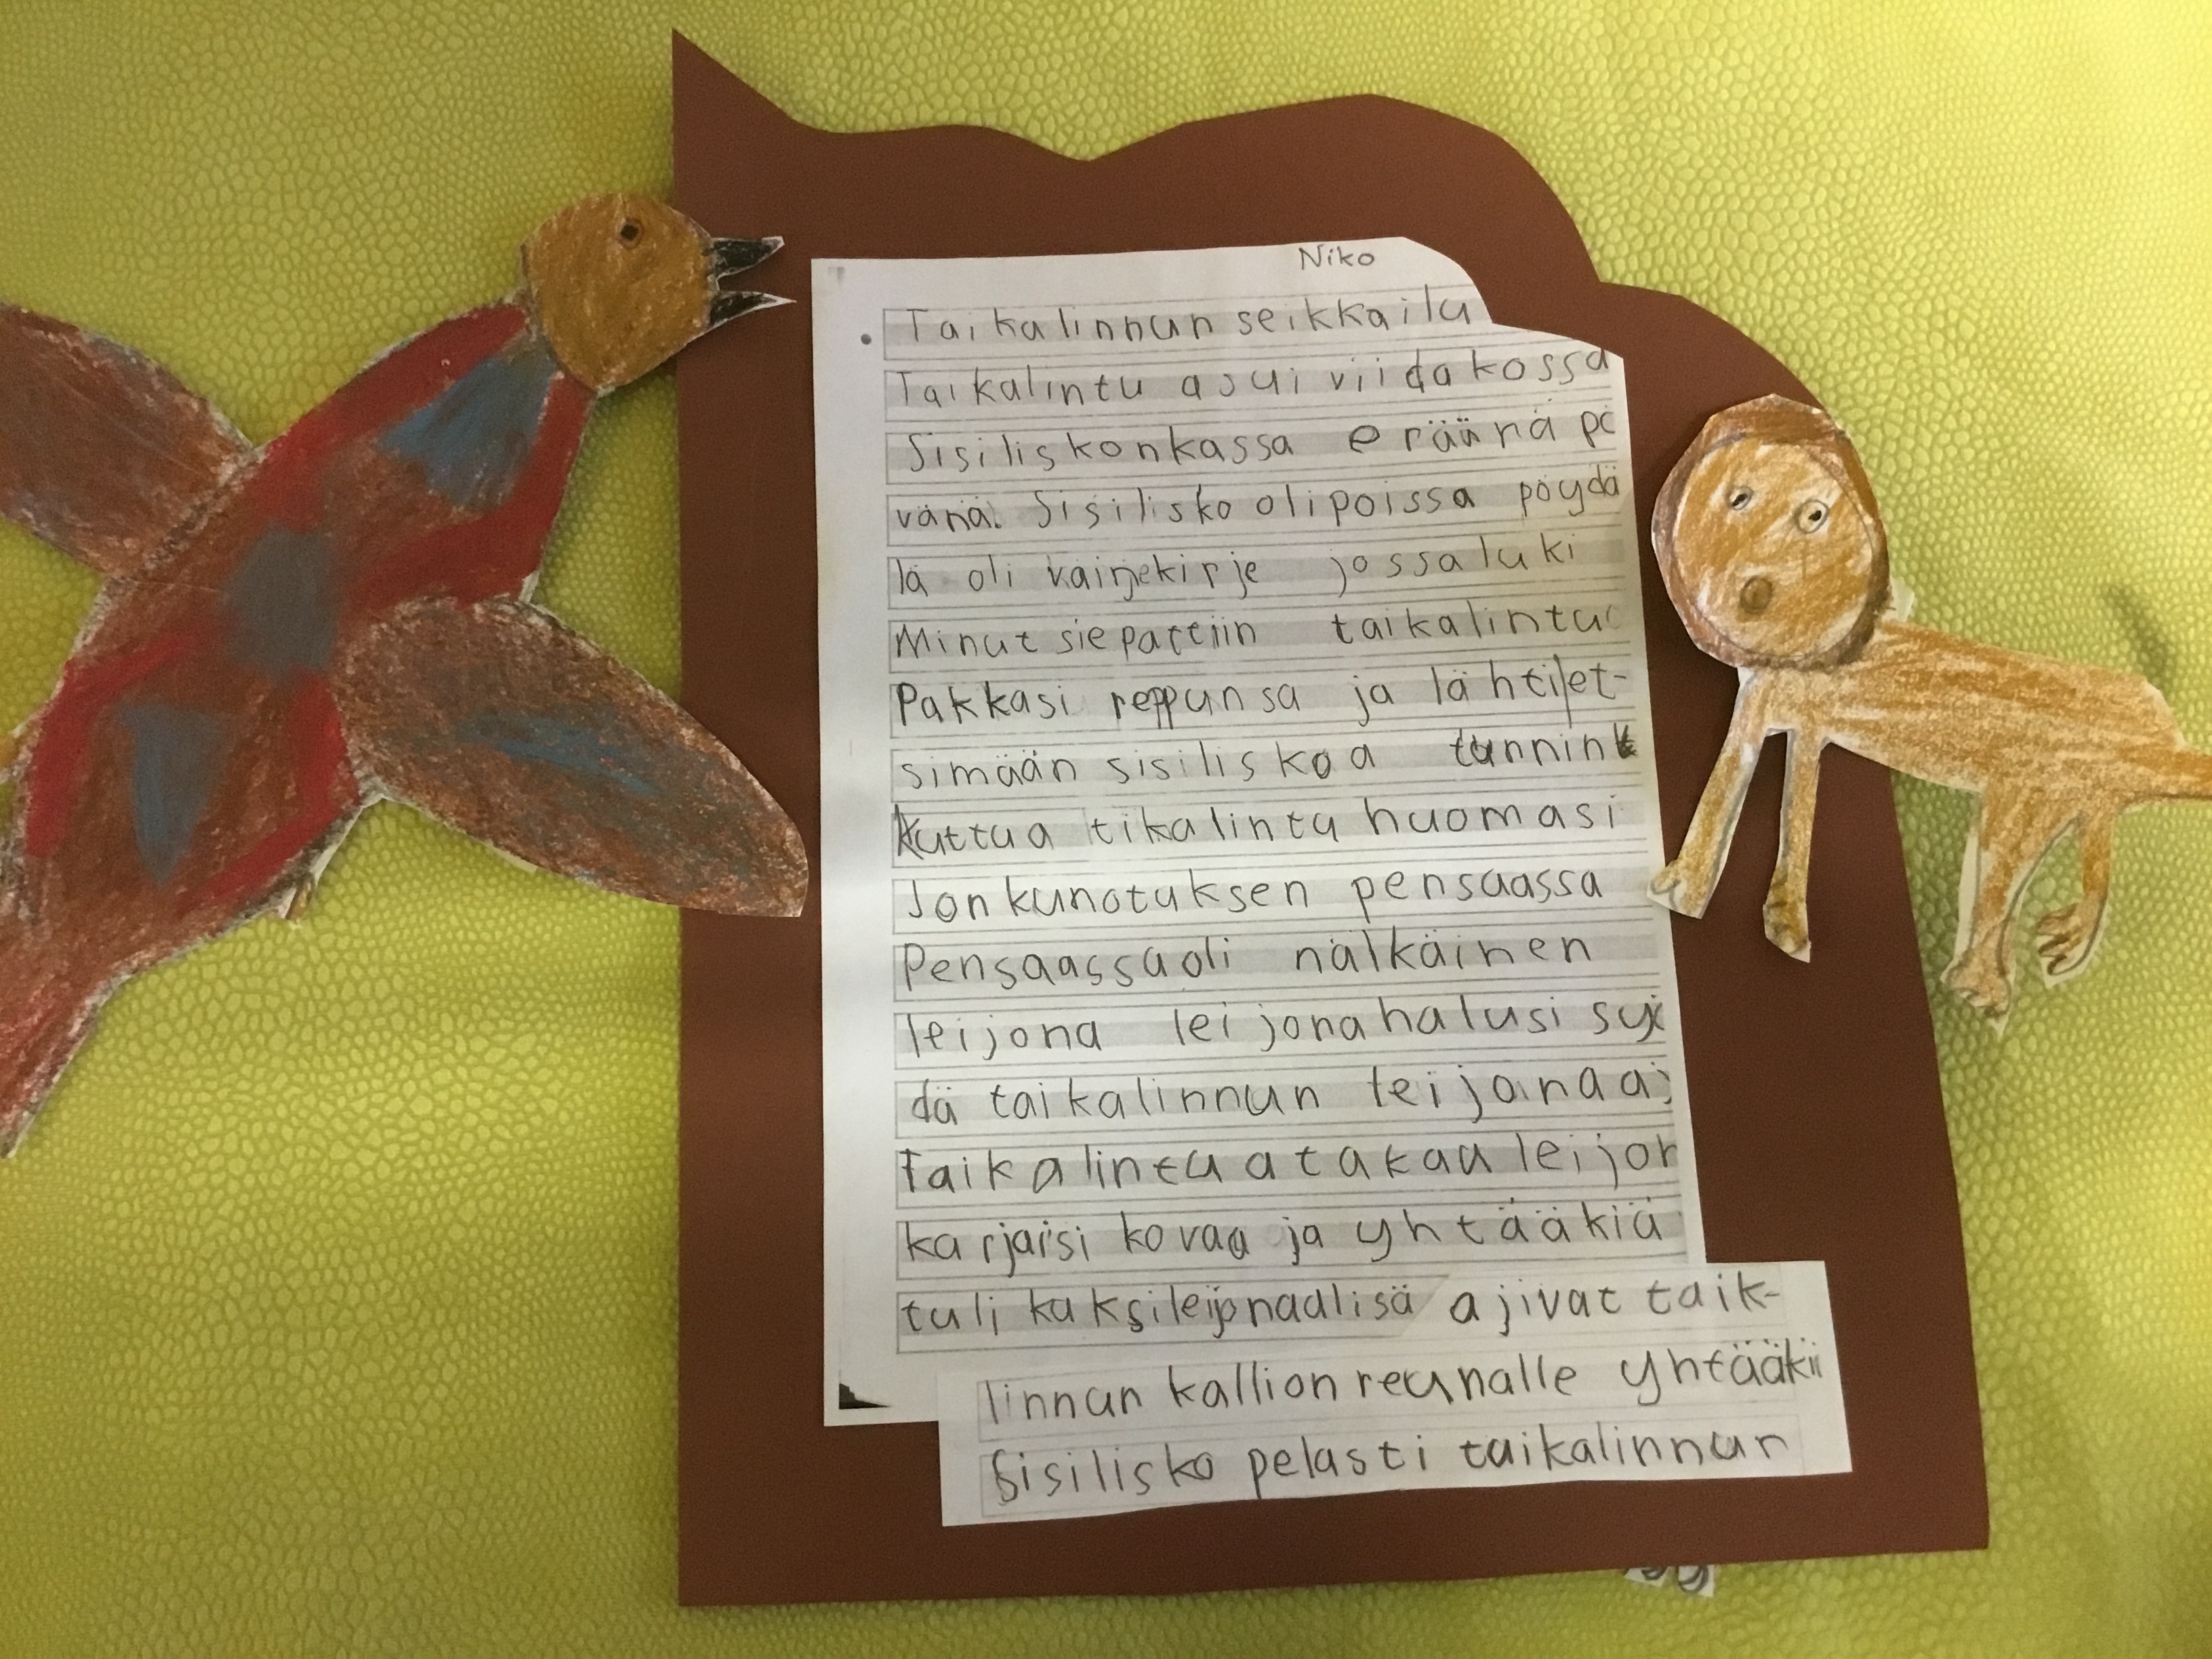 Niko
Taikalinnun seikkailu
Taikalintu asui viidakossa
Sisiliskonkassa eräänä pä
vänä. Sisilisko oli poissa pöydä
lä oli kirje jossa luki
Minut siepattiin taikalintu
Pakkasi reppunsa ja lähti et-
simään sisiliskoa tunnin
kuttua tikalintu huomasi
Jonkunotuksen pensaassa
Pensaassa oli nälkäinen
leijona leijona halusi syö
dä taikalinnun leijona aj
Taikalintua takaa leijon
karjaisi kovaa ja yhtääkiä
tuli kaksi leijonaa lisä ajivat taik-
linnun kallion reunalle yhtääkii
Sisilisko pelasti taikalinnun